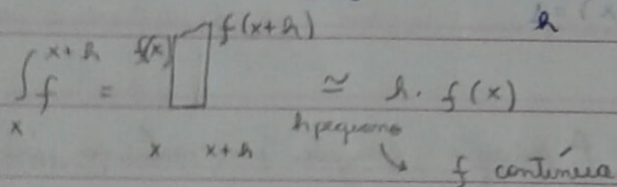 h
x+h f(x) f(x+h)
∫f = ≃ h. f(x)
x x x+h h pequeno
f contínua